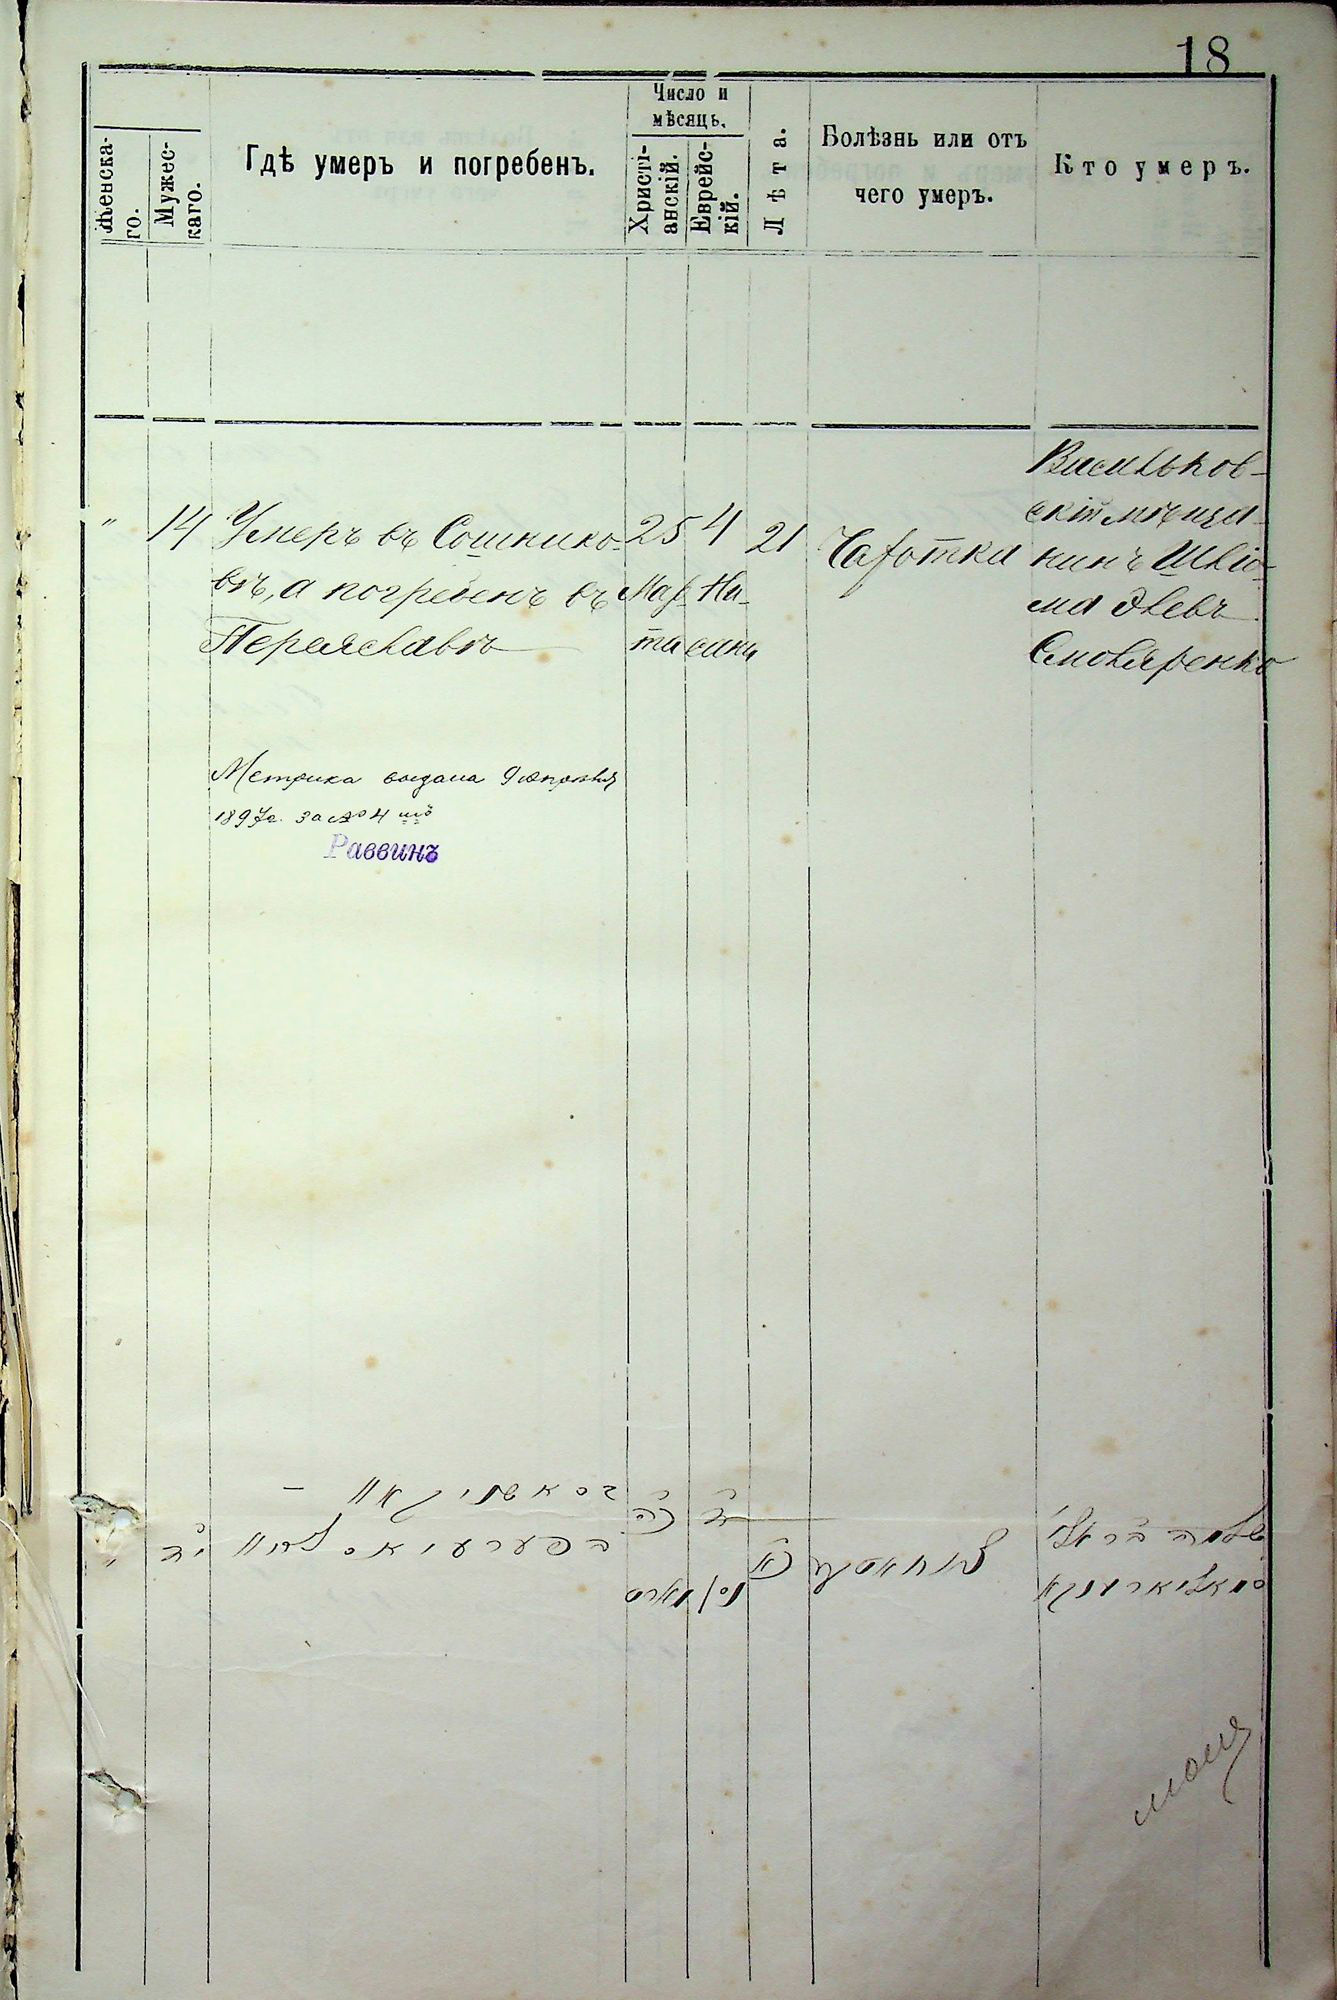 18
Женска-
го.
Мужес-
каго.
Гдѣ умеръ и погребенъ.
Число и
мѣсяцъ.
Христі-
анскій.
Еврейс-
кій.
Лѣта.
Болѣзнь или отъ
чего умеръ.
Кто умеръ.
"
14
Умеръ въ Сошнико-
вѣ, а погребенъ въ
Переяславѣ
25
Мар-
та
4
Ни-
сана
21
Чахотка
Васильков-
скій мѣща-
нинъ Шліо-
ма Элевъ
Смоляренко
Метрика выдана
1897г. за № 4
Раввинъ
יד
כה
מארט
ד
ניסן
כא
שלמה
סמאליארענקא